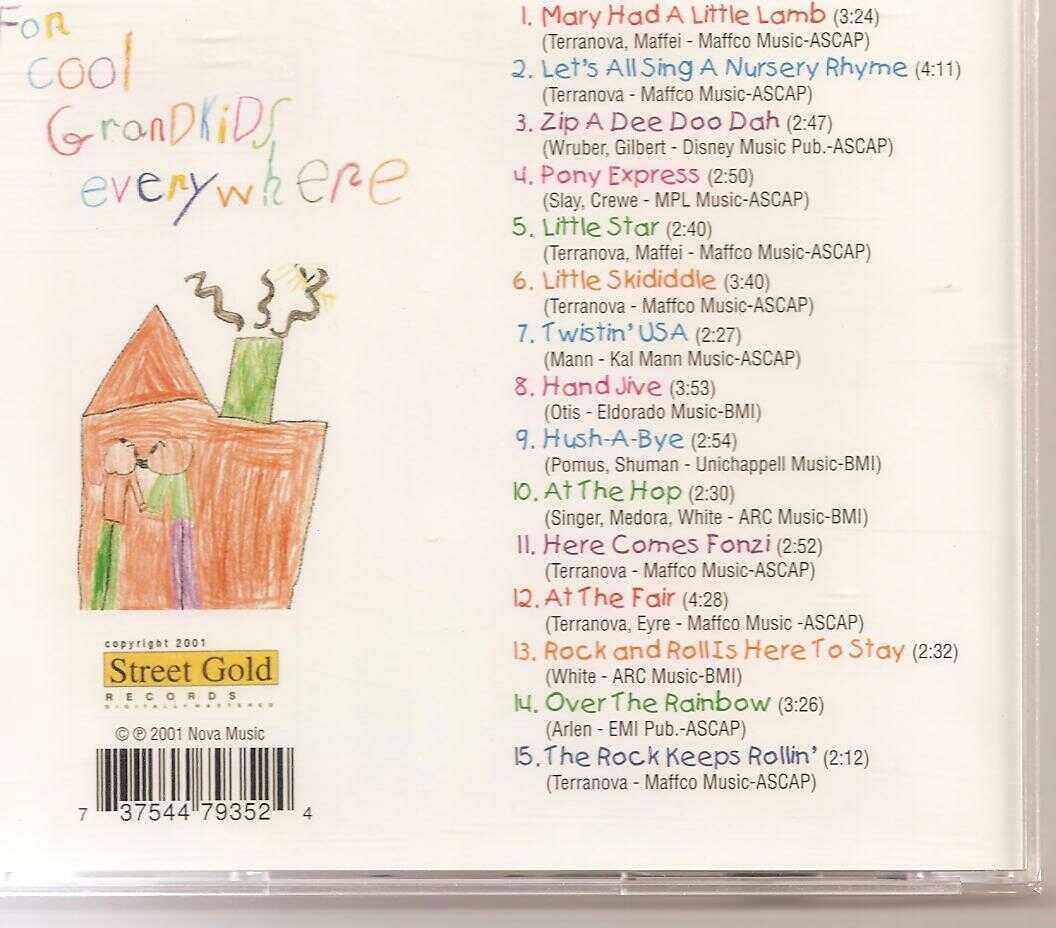 For
cool
GranDKiDS
everywhere
1. Mary Had A Little Lamb (3:24)
(Terranova, Maffei - Maffco Music-ASCAP)
2. Let's All Sing A Nursery Rhyme (4:11)
(Terranova - Maffco Music-ASCAP)
3. Zip A Dee Doo Dah (2:47)
(Wruber, Gilbert - Disney Music Pub.-ASCAP)
4. Pony Express (2:50)
(Slay, Crewe - MPL Music-ASCAP)
5. Little Star (2:40)
(Terranova, Maffei - Maffco Music-ASCAP)
6. Little Skididdle (3:40)
(Terranova - Maffco Music-ASCAP)
7. Twistin' USA (2:27)
(Mann - Kal Mann Music-ASCAP)
8. Hand Jive (3:53)
(Otis - Eldorado Music-BMI)
9. Hush-A-Bye (2:54)
(Pomus, Shuman - Unichappell Music-BMI)
10. At The Hop (2:30)
(Singer, Medora, White - ARC Music-BMI)
11. Here Comes Fonzi (2:52)
(Terranova - Maffco Music-ASCAP)
12. At The Fair (4:28)
(Terranova, Eyre - Maffco Music -ASCAP)
13. Rock and Roll Is Here To Stay (2:32)
(White - ARC Music-BMI)
14. Over The Rainbow (3:26)
(Arlen - EMI Pub.-ASCAP)
15. The Rock Keeps Rollin' (2:12)
(Terranova - Maffco Music-ASCAP)
copyright 2001
Street Gold
RECORDS
DIGITALLY MASTERED
© ℗ 2001 Nova Music
7 37544 79352 4